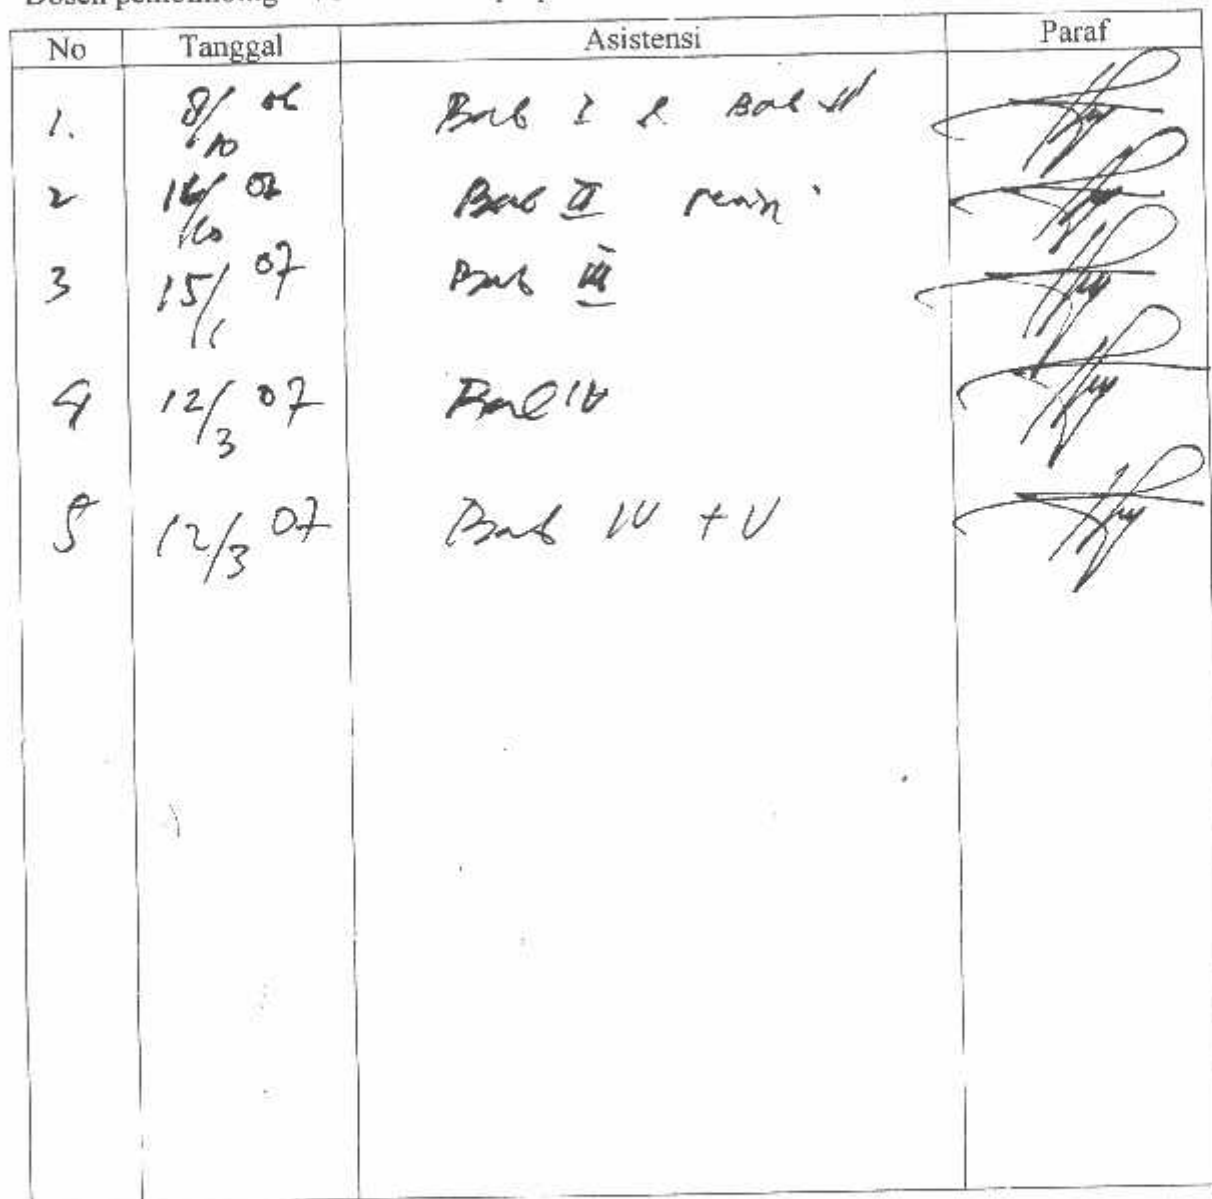 Dosen pembimbing
No Tanggal Asistensi Paraf
1. 8/10 06 Bab I & Bab II
2 16/10 06 Bab II revisi
3 15/1 07 Bab III
4 12/3 07 Bab IV
5 12/3 07 Bab IV + V